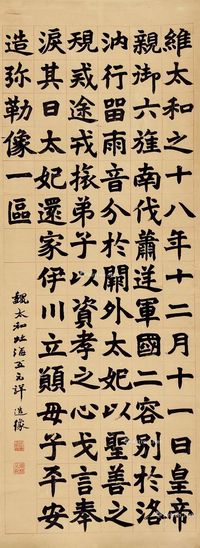 維太和之十八年十二月十一日皇帝
親御六旌南伐蕭逆軍國二容別於洛
汭行留雨音分於闕外太妃以聖善之
規戒途戎旅弟子以資孝之心戈言奉
淚其日太妃還家伊川立願母子平安
造弥勒像一區
魏太和北海王元詳造像